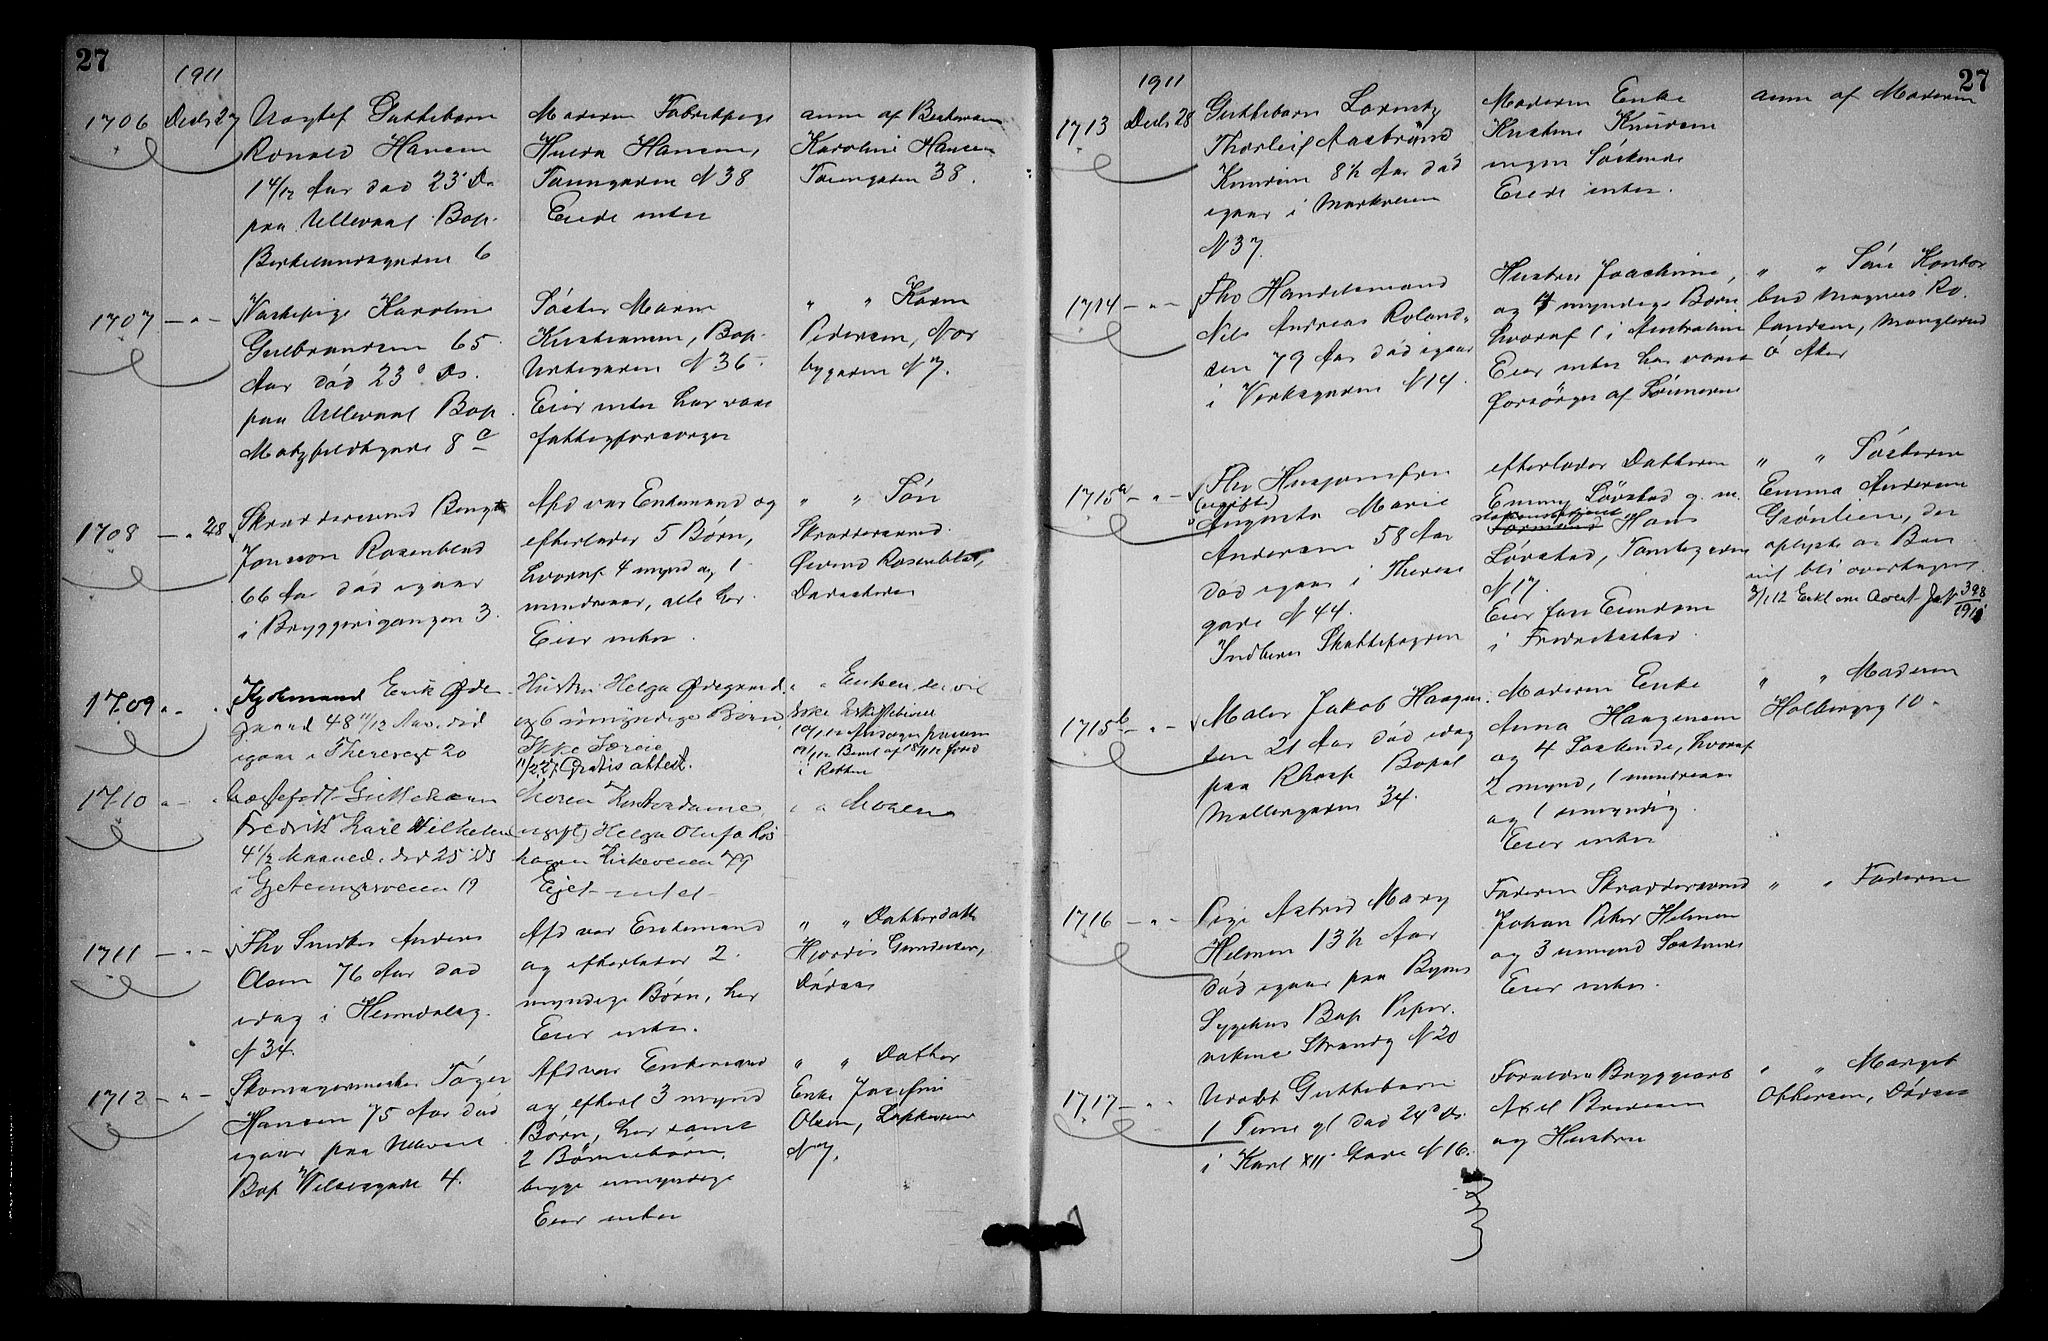 27
1911
1706 Decbr 27
Uægtef Guttebarn
Ronald Hansen
1 4/12 Aar død 23' Ds
paa Ullevaal Bop.
Birkelundsgaden 6
Moderen Fabrikpige
Hulda Hansen,
Tøiengaden N 38
Eiede intet
anm af Bestemor
Karoline Hansen
Tøiengaden 38.
1707 — " —
Vaskepige Karoline
Gulbrandsen 65
Aar død 23' Ds.
paa Ullevaal Bop
Motzfeldtsgade 8 a
Søster Marie
Kristiansen, Bop.
Urtegaden N 36
Eier intet har været
fattigforsørget
" " Karen
Pedersen, Nor
bygaden N 7.
1708 — " 28
Skræddersvend Bengt
Jonsson Rosenblad
66 Aar død igaar
i Bryggerigangen 3.
Afd var Enkemand og
efterlader 5 Børn,
hvoraf 4 mynd og 1
mindreaar, alle her
Eier intet.
" " Søn
Skræddersvend
Øivind Rosenblad,
Darasteren
1709 " "
Kjøbmand Erik Øde
gaard 48 11/12 Aar, død
igaar i Theresesgt 20
Hustru Helga Ødegaard
og 6 umyndige Børn
Ikke Særeie
11/2 22; Gratis attest.
" " Enken, der vil
i Retten
1710 " "
Uægtefødt Guttebarn
Fredrik Karl Vilhelm
4 1/2 Maaned, død 25' ds
i Gjetemyrsveien 19
Moren Kontordame
ugift, Helga Olufa Ros
hagen Kirkeveien 79
Ejet intet
" " Moren
1711 — " —
Fhv Snedker Anders
Olsen 76 Aar død
idag i Heimdalsg.
N 34.
Afd var Enkemand
og efterlader 2
myndige Børn, her
Eier intet.
" " Datterdatter
Hjørdis Gundersen,
Dødsbo
1712 — " —
Skomagermester Tøger
Hansen 75 Aar død
igaar paa Ullevaal
Bop Vibesgade 4.
Afd var Enkemand
og efterl 3 mynd
Børn, her samt
2 Børnebørn,
begge umyndige
Eier intet
" " Datter
Enke Josefine
Olsen, Løkkeveien
N 7.
27
1911
1713 Decbr 28
Guttebarn Lorentz
Thorleif Aastrand
Knudsen 8 1/2 Aar død
igaar i Markveien
N 37.
Moderen Enke
Kristine Knudsen
ingen Søskende
Eiede intet.
anm af Moderen
1714 — " —
Fhv Handelsmand
Nils Andreas Roland-
sen 79 Aar død igaar
i Verksgaden N 14.
Hustru Joachime,
og 4 myndige Børn
hvoraf 1 i Australien
Eier intet har været
forsørget af Sønnerne
" " Søn Kontor
bud Magnus Ro
landsen, Manglerud
Ø Aker
1715a — " —
Fhv Husjomfru
(ugift)
Augusta Marie
Andersen 58 Aar
død igaar i Therese
gade N 44.
Indberet Skattefogden
efterlader Datteren
Emmy Løvstad g. m.
Formand Hans
Løvstad, Tomtegaden
N 17.
Eier fast Eiendom
i Fredrikstad.
" " Søsteren
Emma Andersen
Grønlien, der
oplyste at Boet
vil bli overtaget.
398
1911
1715b — " —
Maler Jakob Haagen
sen 21 Aar død idag
paa Rhosp Bopæl
Møllergaden 34.
Moderen Enke
Anna Haagensen
og 4 Søskende, hvoraf
2 mynd, 1 mindreaar
og 1 umyndig.
Eier intet
" " Moderen
Holbergsg 10.
1716 — " —
Pige Astrid Mary
Helman 13 1/2 Aar
død igaar paa Byens
Sygehus Bop Piper
vikens Strandg N 20
Faderen Skræddersvend
Johan Peter Helman
og 3 umynd Søskende
Eier intet.
" " Faderen
1717 — " —
Udøbt Guttebarn
1 Time gl død 24' Ds.
i Karl XII Gade N 16.
Forældre Bryggearb
Axel Bredesen
og Hustru
" " Margit
Ottersen, Dødsbo